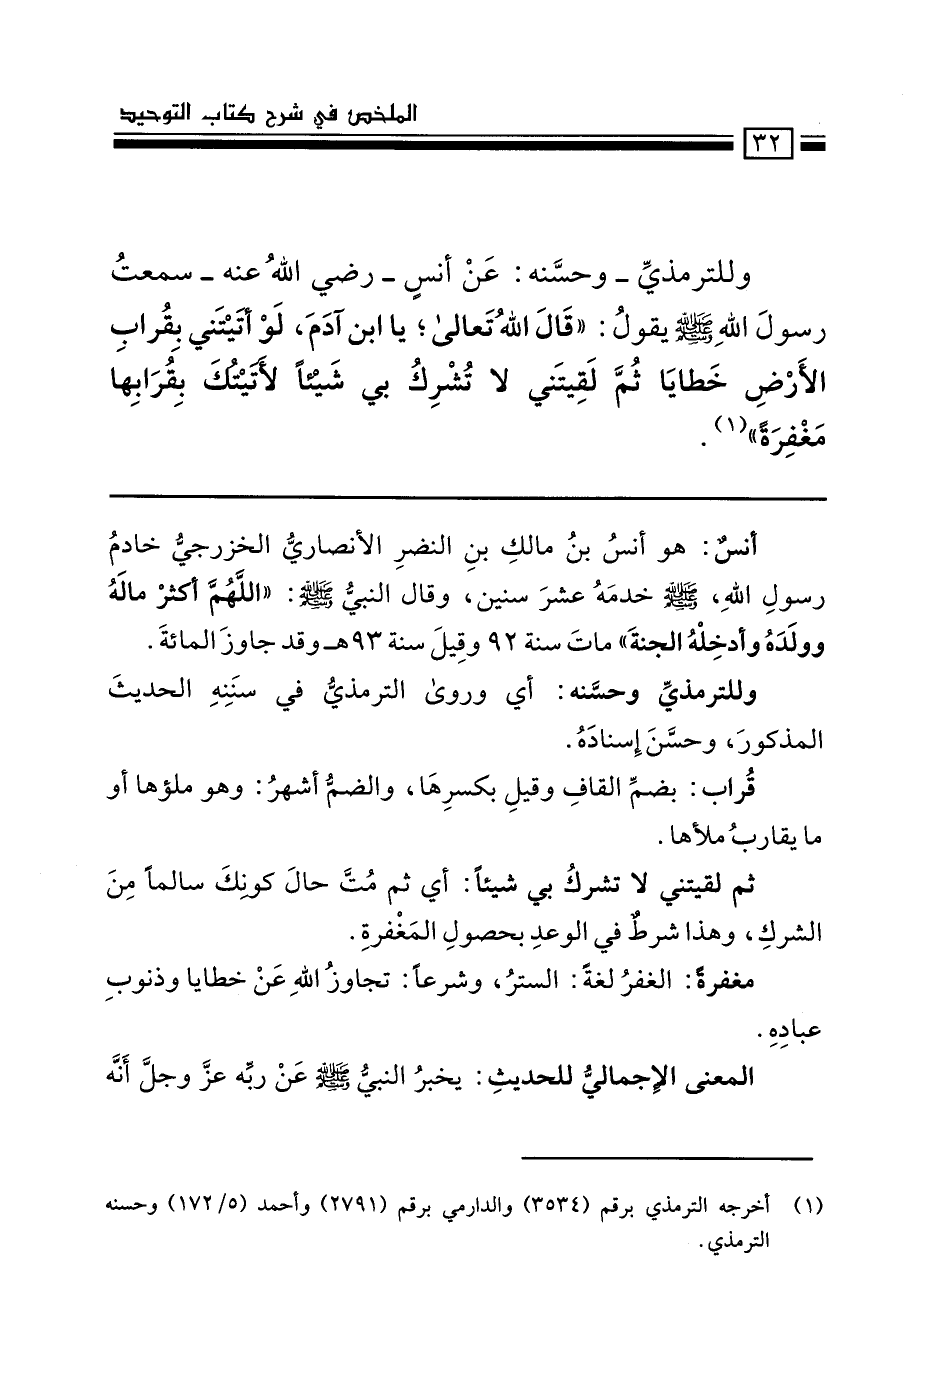 الملخص في شرح كتاب التوحيد
٣٢
وللترمذيِّ ـ وحسَّنه : عَنْ أنسٍ ـ رضي اللهُ عنه ـ سمعتُ
رسولَ اللهِ ﷺ يقولُ : «قَالَ اللهُ تَعالىٰ ؛ يا ابن آدَمَ، لَوْ أتَيْتَني بِقُرابِ
الأَرْضِ خَطايَا ثُمَّ لَقِيتَني لا تُشْرِكُ بي شَيْئاً لأَتَيْتُكَ بِقُرَابِها
مَغْفِرَةً»(١) .
أنسٌ : هو أنسُ بنُ مالكِ بنِ النضرِ الأنصاريُّ الخزرجيُّ خادمُ
رسولِ اللهِ، ﷺ خدمَهُ عشرَ سنين، وقال النبيُّ ﷺ : «اللَّهُمَّ أكثرْ مالَهُ
وولَدَهُ وأدخِلْهُ الجنةَ» ماتَ سنة ٩٢ وقِيلَ سنة ٩٣هـ وقد جاوزَ المائةَ .
وللترمذيِّ وحسَّنه : أي وروىٰ الترمذيُّ في سنَنِهِ الحديثَ
المذكورَ، وحسَّنَ إسنادَهُ .
قُراب : بضمِّ القافِ وقيلِ بكسرِهَا، والضمُّ أشهرُ : وهو ملؤها أو
ما يقاربُ ملأها .
ثم لقيتني لا تشركُ بي شيئاً : أي ثم مُتَّ حالَ كونِكَ سالماً مِنَ
الشركِ، وهذا شرطٌ في الوعدِ بحصولِ المَغْفرةِ .
مغفرةً : الغفرُ لغةً : السترُ، وشرعاً : تجاوزُ اللهِ عَنْ خطايا وذنوبِ
عبادِهِ .
المعنى الإجماليُّ للحديثِ : يخبرُ النبيُّ ﷺ عَنْ ربِّه عزَّ وجلَّ أنَّه
(١) أخرجه الترمذي برقم (٣٥٣٤) والدارمي برقم (٢٧٩١) وأحمد (٥/ ١٧٢) وحسنه
الترمذي .